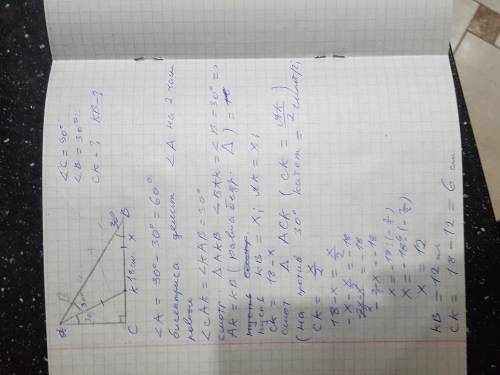 ∠C=90°
∠B=30°
CK-? KB-?
A 30° B
C K 18см x
∠A = 90° - 30° = 60°
биссектриса делит ∠A на 2 части
равной
∠CAK = ∠KAB = 30°
смотр. △AKB ∠BAK = ∠B = 30° =>
AK = KB (равнобедр. △) =>
пусть KB = x; AK = x;
CK = 18-x
смот △ ACK (CK = AK/2)
(на против 30° катет = 2 гипот)
CK = x/2
18-x = x/2
-x - x/2 = -18
x = -18 · (-2/3)
x = 12
KB = 12 см
CK = 18 - 12 = 6 см